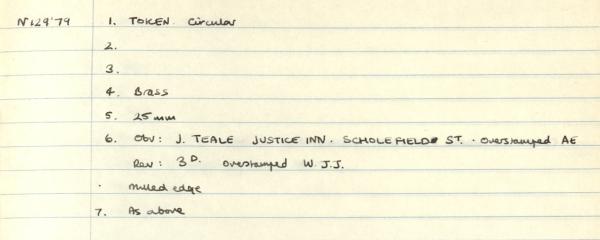 N129'79 1. TOKEN. Circular
2.
3.
4. Brass
5. 25mm
6. Obv: J. TEALE JUSTICE INN. SCHOLEFIELD ST. . Overstamped AE
Rev: 3D. Overstamped W.J.J.
. Milled edge
7. As above